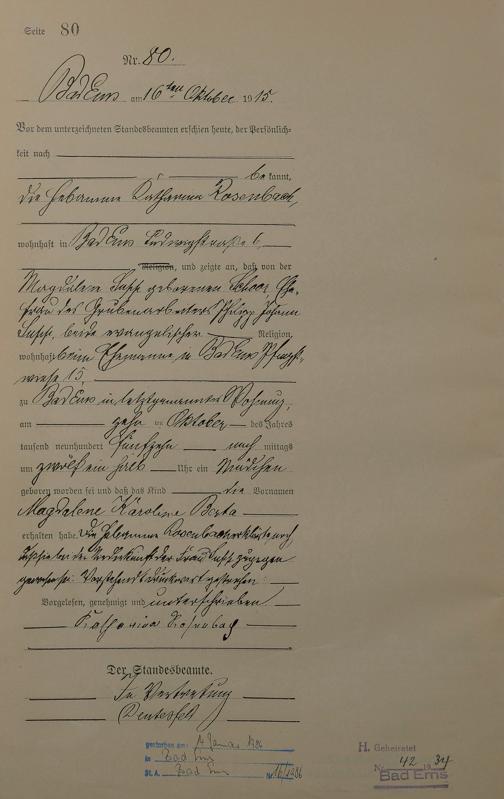 Seite 80
Nr. 80.
Bad Ems am 16ten Oktober 1915.
Vor dem unterzeichneten Standesbeamten erschien heute, der Persönlich-
keit nach
be kannt,
die Hebamme Katharina Rosenbach,
wohnhaft in Bad Ems Ludwigstraße 6,
Religion, und zeigte an, daß von der
Magdalene geborenen Schoor, Ehe-
frau des Grubenarbeiters Philipp Johann
beide evangelischer Religion,
wohnhaft beim Ehemanne in Bad Ems
wiese 15,
zu Bad Ems in letztgenannter Wohnung,
am zehn ten Oktober des Jahres
tausend neunhundert fünfzehn nach mittags
um zwölf ein halb Uhr ein Mädchen
geboren worden sei und daß das Kind die Vornamen
Magdalene Karoline Berta
erhalten habe. Die Hebamme Rosenbach erklärte noch
daß sie bei der Niederkunft der Frau zugegen
gewesen sei. Vorstehend Druckwort gestrichen.
Vorgelesen, genehmigt und unterschrieben
Katharina Rosenbach
Der Standesbeamte.
In Vertretung
gestorben am: Januar 1986
in Bad Ems
St. A. Bad Ems Nr. 16/1986
H. Geheiratet
Nr. 42 1934
Bad Ems